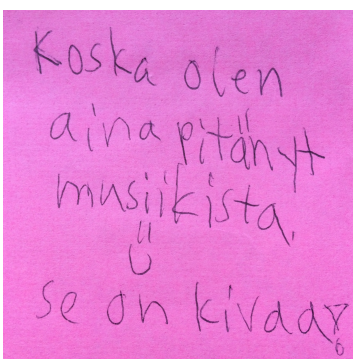 Koska olen
aina pitänyt
musiikista.
Ü
se on kivaa!